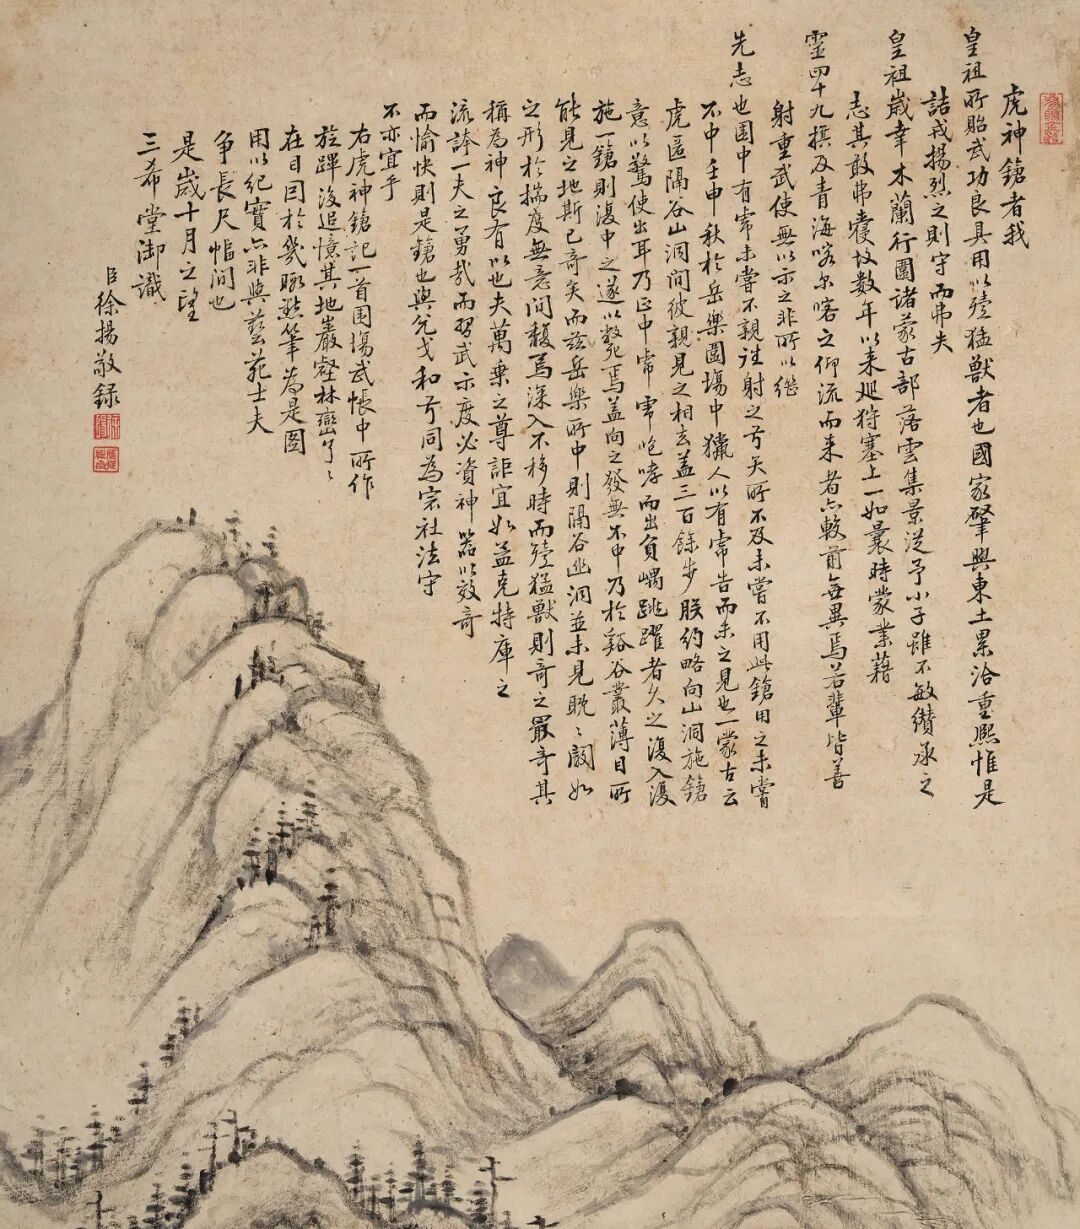 虎神鎗者我
皇祖所貽武功良具用以殪猛獸者也國家肇興東土累洽重熙惟是
詰戎揚烈之則守而弗失
皇祖歲幸木蘭行圍諸蒙古部落雲集景從予小子雖不敏纘承之
志其敢弗蘉故數年以來廵狩塞上一如曩時蒙業藉
靈四十九旗及青海喀尔喀之仰流而来者亦較前無異焉若輩皆善
射重武使無以示之非所以繼
先志也圍中有常未嘗不親往射之弓矢所不及未嘗不用此鎗用之未嘗
不中壬申秋於岳樂圍場中獵人以有虎告而未之見也一蒙古云
虎匿隔谷山洞間彼親見之相去盖三百餘步朕約略向山洞施鎗
意以驚使出耳乃正中虎虎咆哮而出負嵎跳躍者久之復入復
施一鎗則復中之遂以斃焉盖向之發無不中乃於谿谷叢薄目所
能見之地斯已奇矣而兹岳樂所中則隔谷幽洞並未見眈〻闞如
之形於揣度無意間馥焉深入不移時而殪猛獸則奇之最奇其
稱為神良有以也夫萬乗之尊詎宜如孟克特庫之
流誇一夫之勇哉而習武示度必資神器以效奇
而愉快則是鎗也與兊戈和弓同為宗社法守
不亦宜乎
右虎神鎗記一首圍場武帳中所作
旋蹕後追憶其地巖壑林巒了〻
在目因於幾暇點筆為是圖
用以紀實亦非與藝苑士夫
争長尺幅間也
是歲十月之望
三希堂御識
臣徐揚敬録